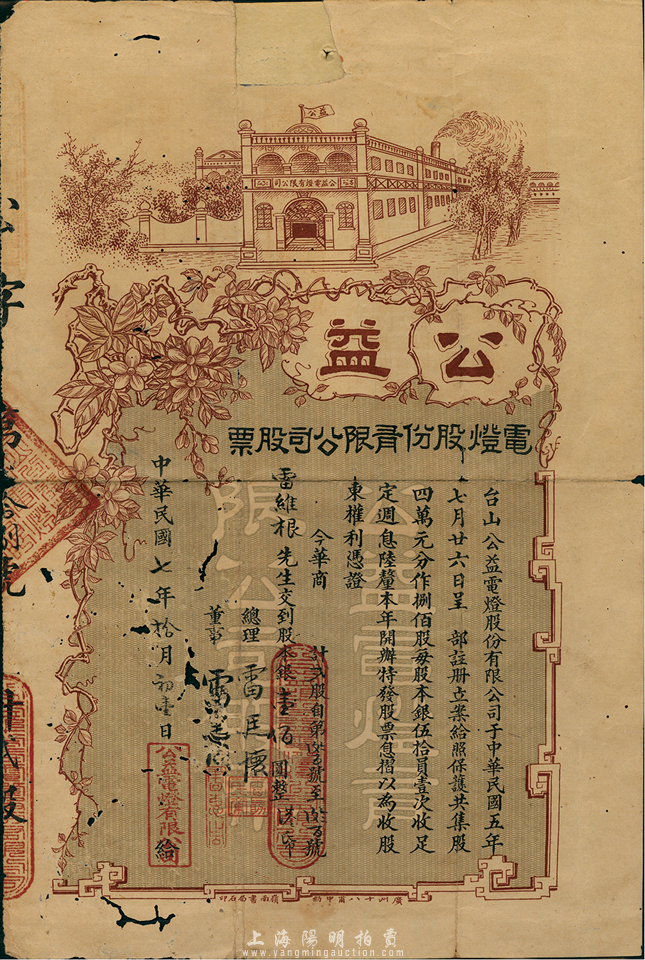 益公
公益電燈有限公司
公益
電燈股份有限公司股票
台山公益電燈股份有限公司于中華民國五年
七月廿六日呈 部註册立案給照保護共集股
四萬元分作捌佰股每股本銀伍拾員壹次收足
定週息陸釐本年開辦特發股票息摺以為收股
東權利憑證
今華商
雷維根先生交到股本銀壹佰圓整
計弍股自第 號至 號
總理 雷
董事 雷
中華民國七年拾月初壹日
公益電燈有限公司
給
字第 號
計弍股
廣州十八甫中約嶺南書局石印
上海陽明拍賣
www.yangmingauction.com